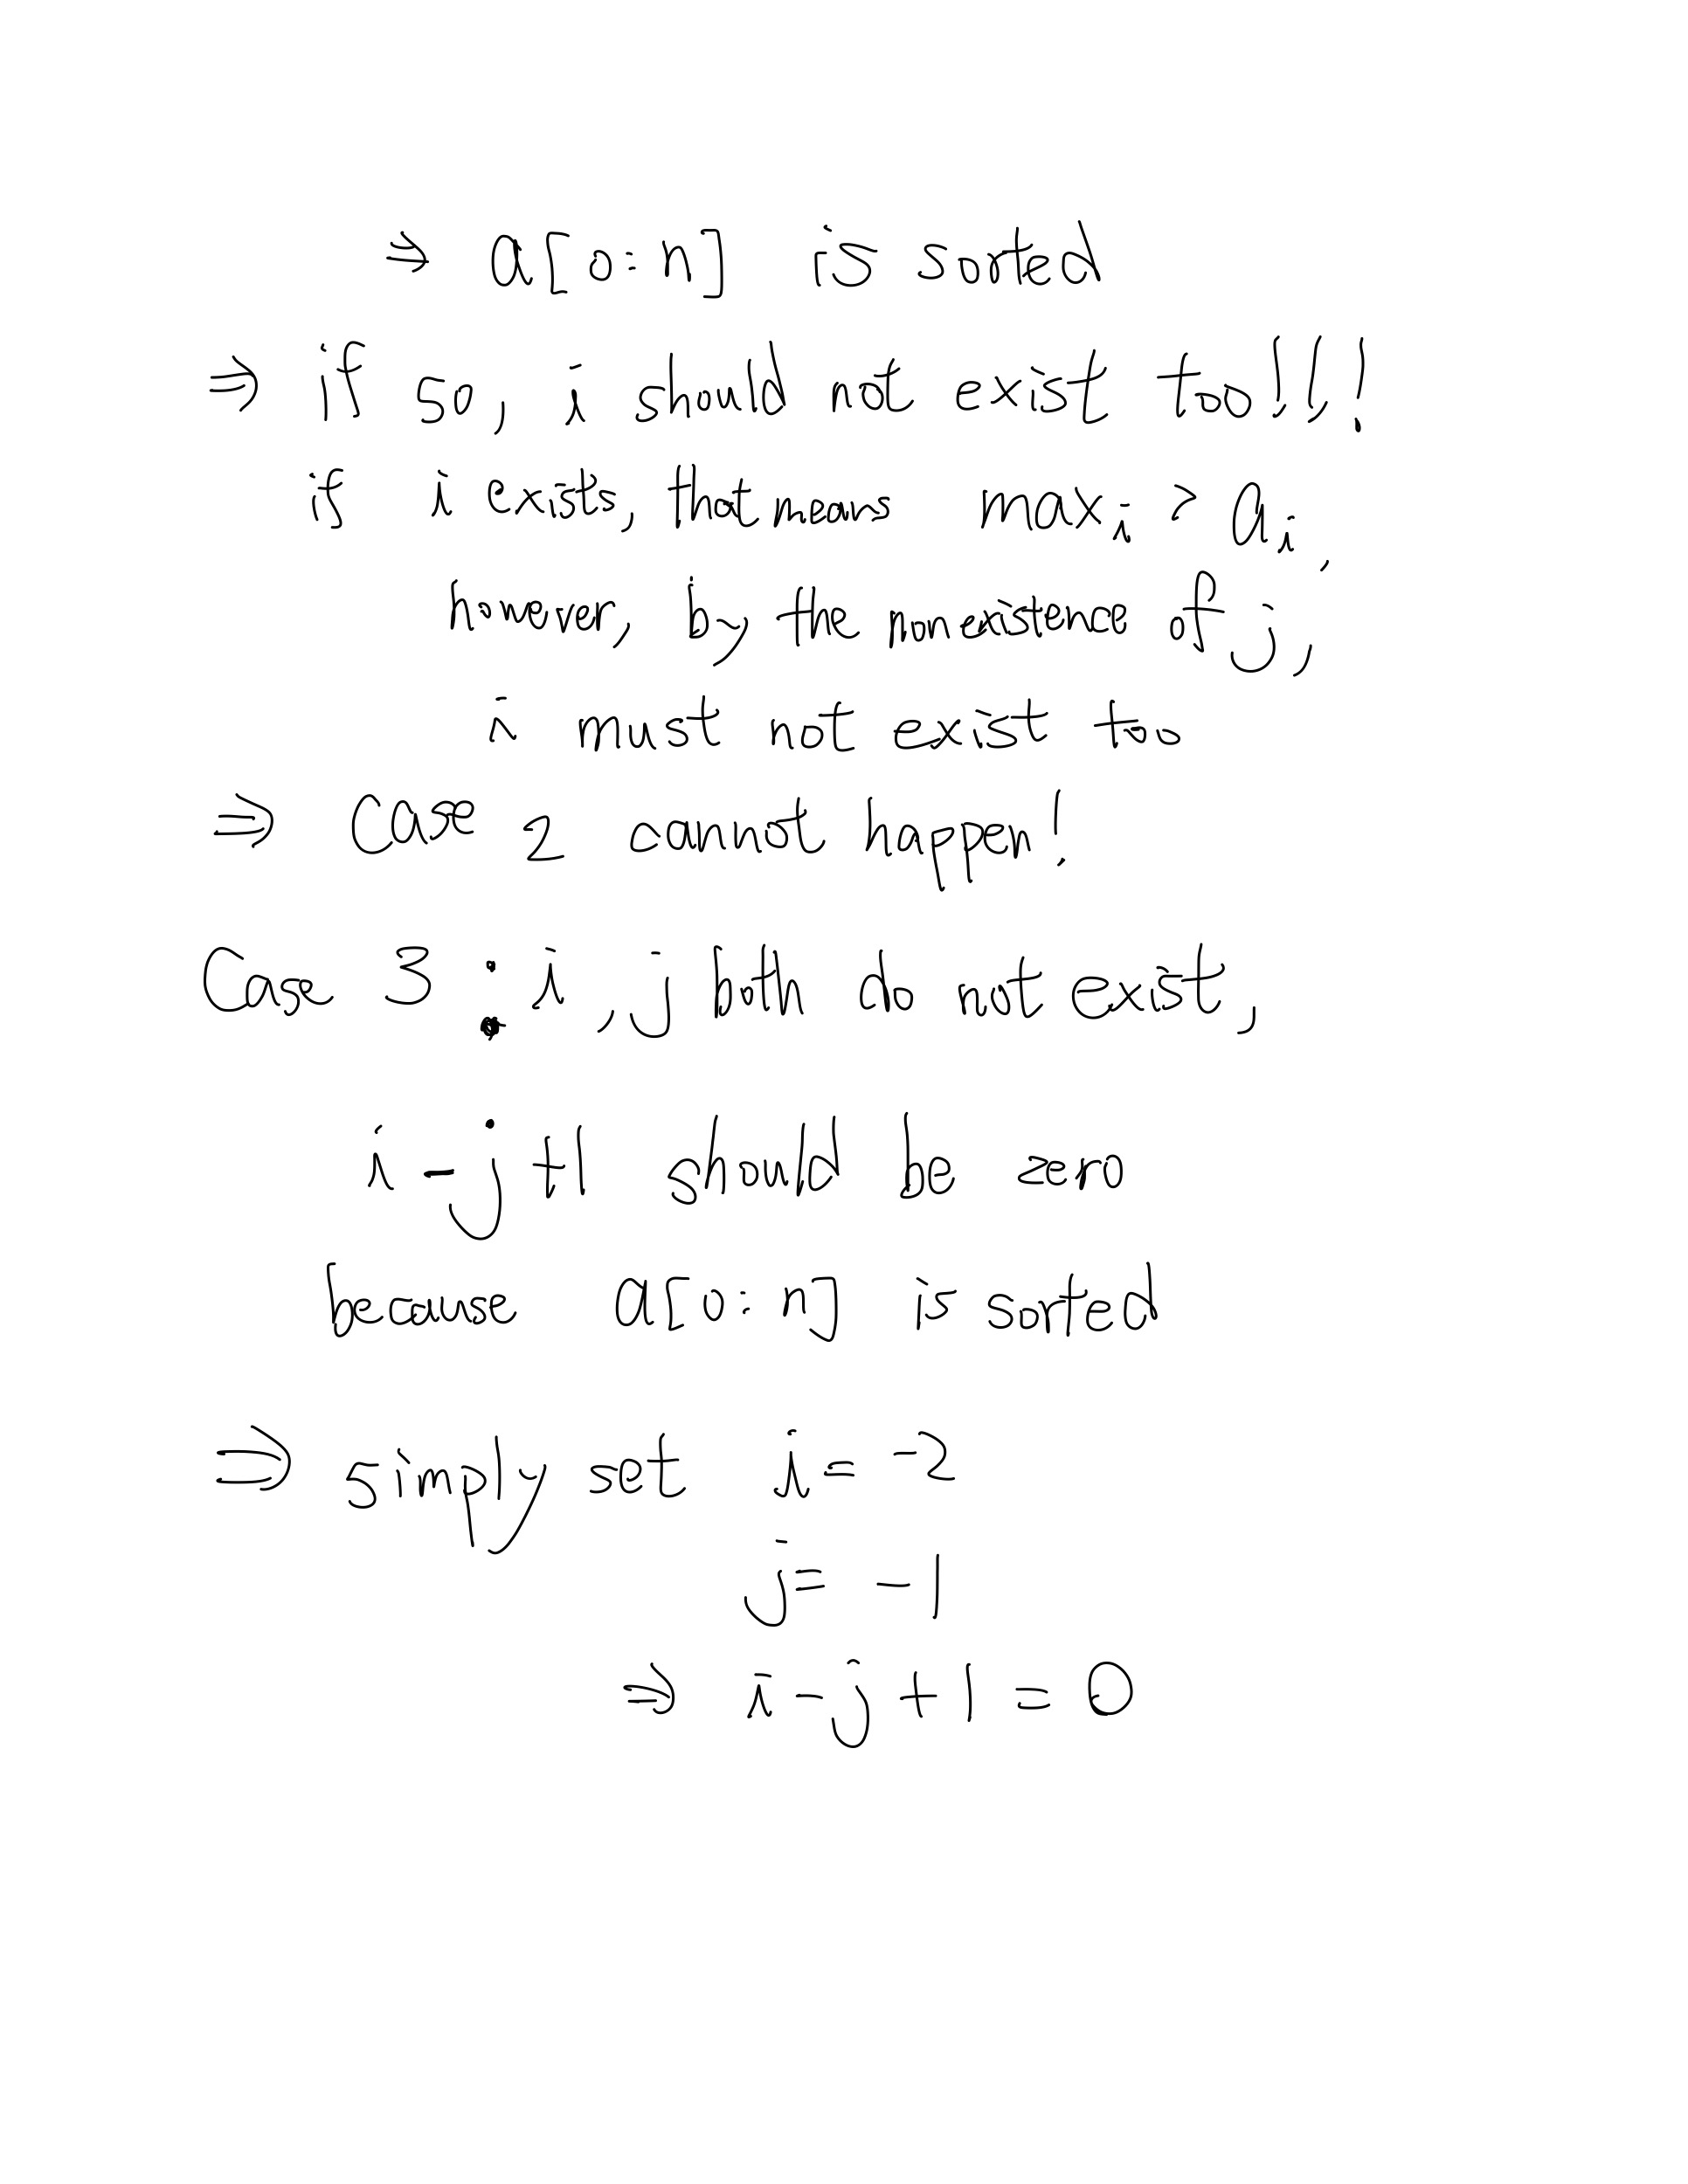 → a[0:n] is sorted
⇒ if so, i should not exist too!!!
if i exists, that means max_i > a_i,
however, by the nonexistence of j,
i must not exist too
⇒ case 2 cannot happen!
Case 3 : i, j both do not exist,
i - j + 1 should be zero
because a[0:n] is sorted
⇒ simply set i = -2
j = -1
⇒ i - j + 1 = 0